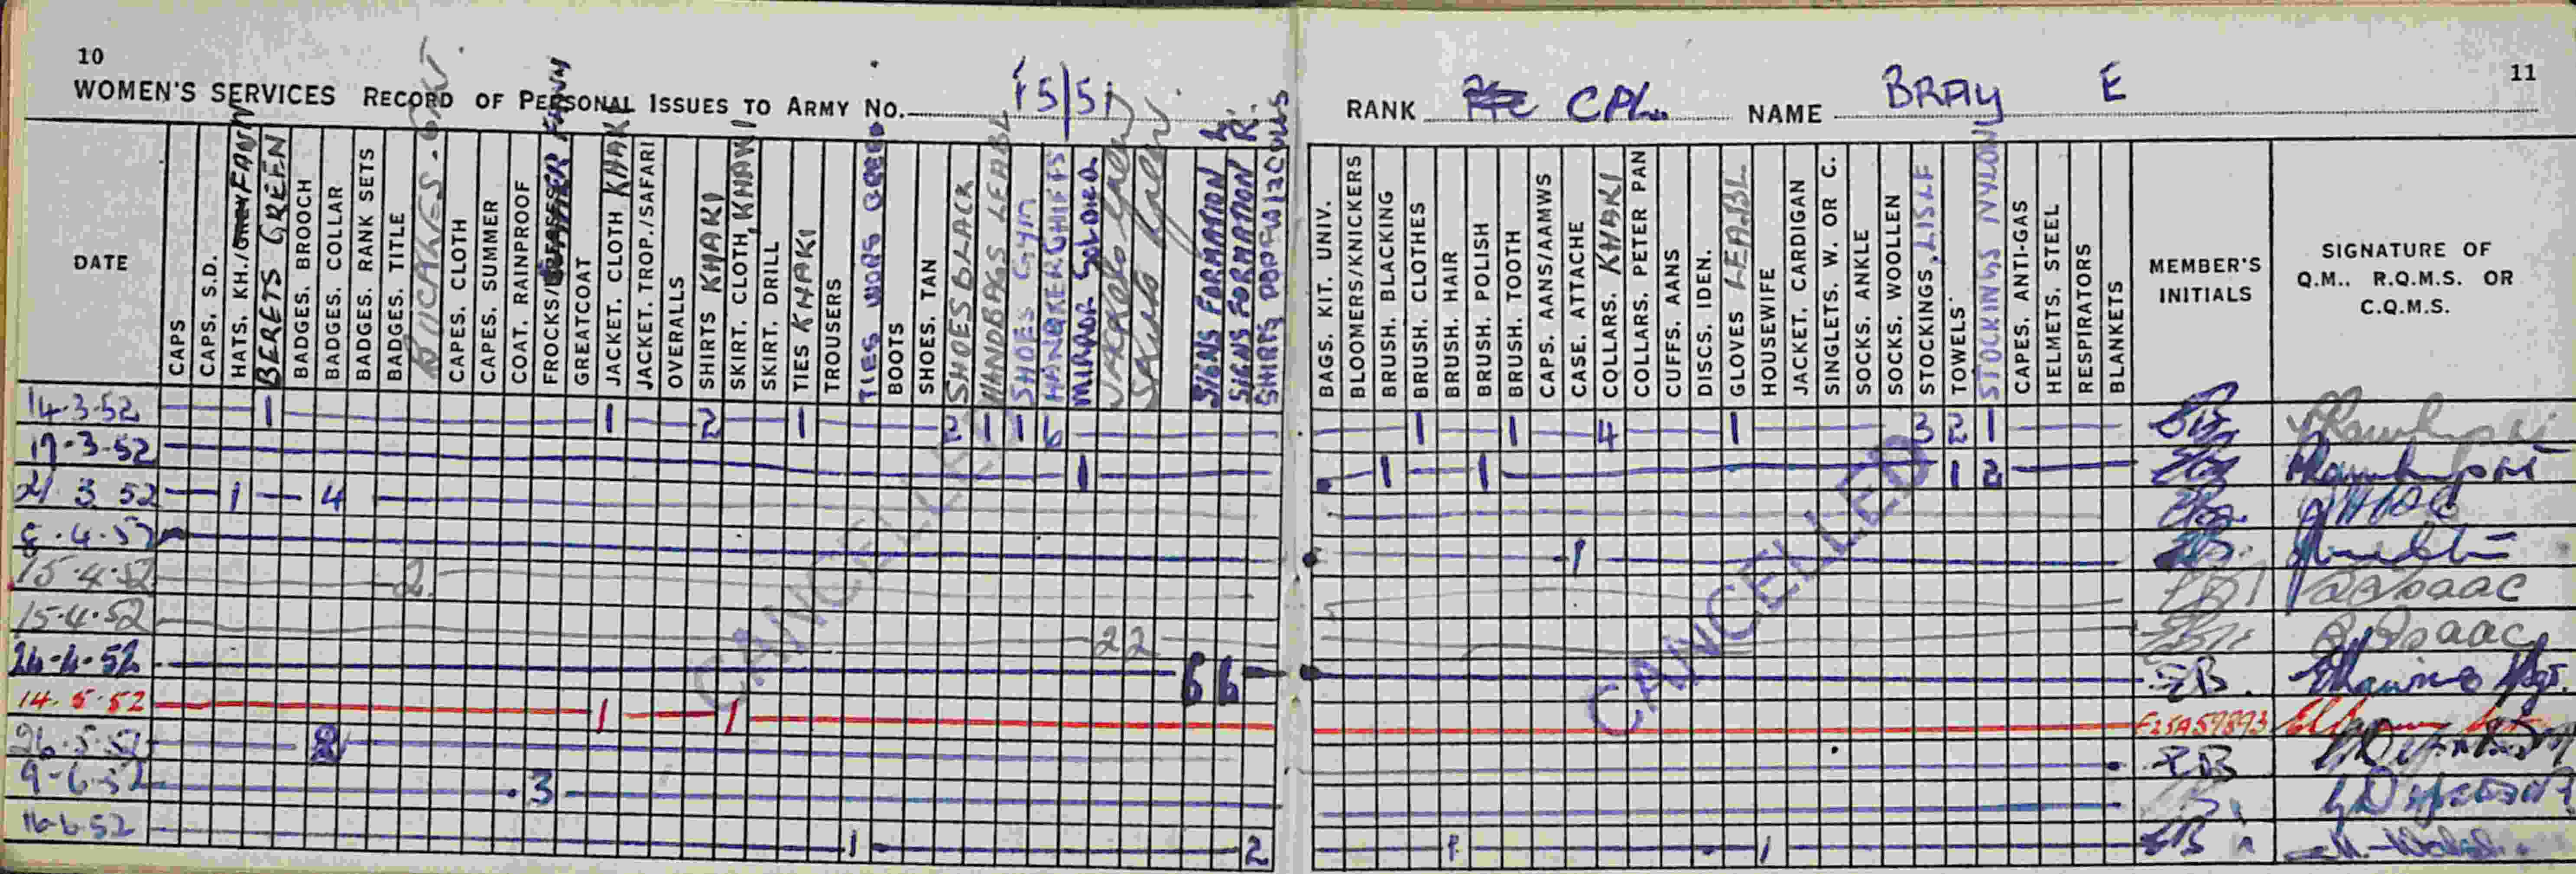 10
WOMEN'S SERVICES RECORD OF PERSONAL ISSUES TO ARMY NO. F5/51
RANK CPL. NAME BRAY E
11
DATE
CAPS
CAPS, S.D.
HATS. KH./GREY FAWN
BERETS GREEN
BADGES. BROOCH
BADGES. COLLAR
BADGES. RANK SETS
BADGES. TITLE
CAPES. CLOTH
CAPES. SUMMER
COAT. RAINPROOF
FROCKS/
GREATCOAT
JACKET. CLOTH KHAKI
JACKET. TROP./SAFARI
OVERALLS
SHIRTS KHAKI
SKIRT. CLOTH, KHAKI
SKIRT. DRILL
TIES KHAKI
TROUSERS
TIES WORS GREEN
BOOTS
SHOES. TAN
SHOES BLACK
HANDBAGS LEABL
SHOES GYM
HANDKERCHIEFS
MIRROR
SIGNS FORMATION L.
SIGNS FORMATION R.
SHIRTS
BAGS. KIT. UNIV.
BLOOMERS/KNICKERS
BRUSH. BLACKING
BRUSH. CLOTHES
BRUSH. HAIR
BRUSH. POLISH
BRUSH. TOOTH
CAPS. AANS/AAMWS
CASE. ATTACHE
COLLARS. KHAKI
COLLARS. PETER PAN
CUFFS. AANS
DISCS. IDEN.
GLOVES LEA.BL.
HOUSEWIFE
JACKET. CARDIGAN
SINGLETS. W. OR C.
SOCKS. ANKLE
SOCKS. WOOLLEN
STOCKINGS, LISLE
TOWELS
STOCKINGS NYLON
CAPES. ANTI-GAS
HELMETS. STEEL
RESPIRATORS
BLANKETS
MEMBER'S
INITIALS
SIGNATURE OF
Q.M.. R.Q.M.S. OR
C.Q.M.S.
14.3.52 1 1 2 1 2 1 1 6 1 1 4 1 3 2 1
17-3-52 1 1 1 1 2
21 3 52 1 4
8.4.52 1
15.4.52 2
15.4.52 22
24-4-52 6 6 EB.
14.5.52 1 1
26.5.52 2 EB
9-6-52 3
16-6-52 1 2 1 1 EB
CANCELLED
CANCELLED